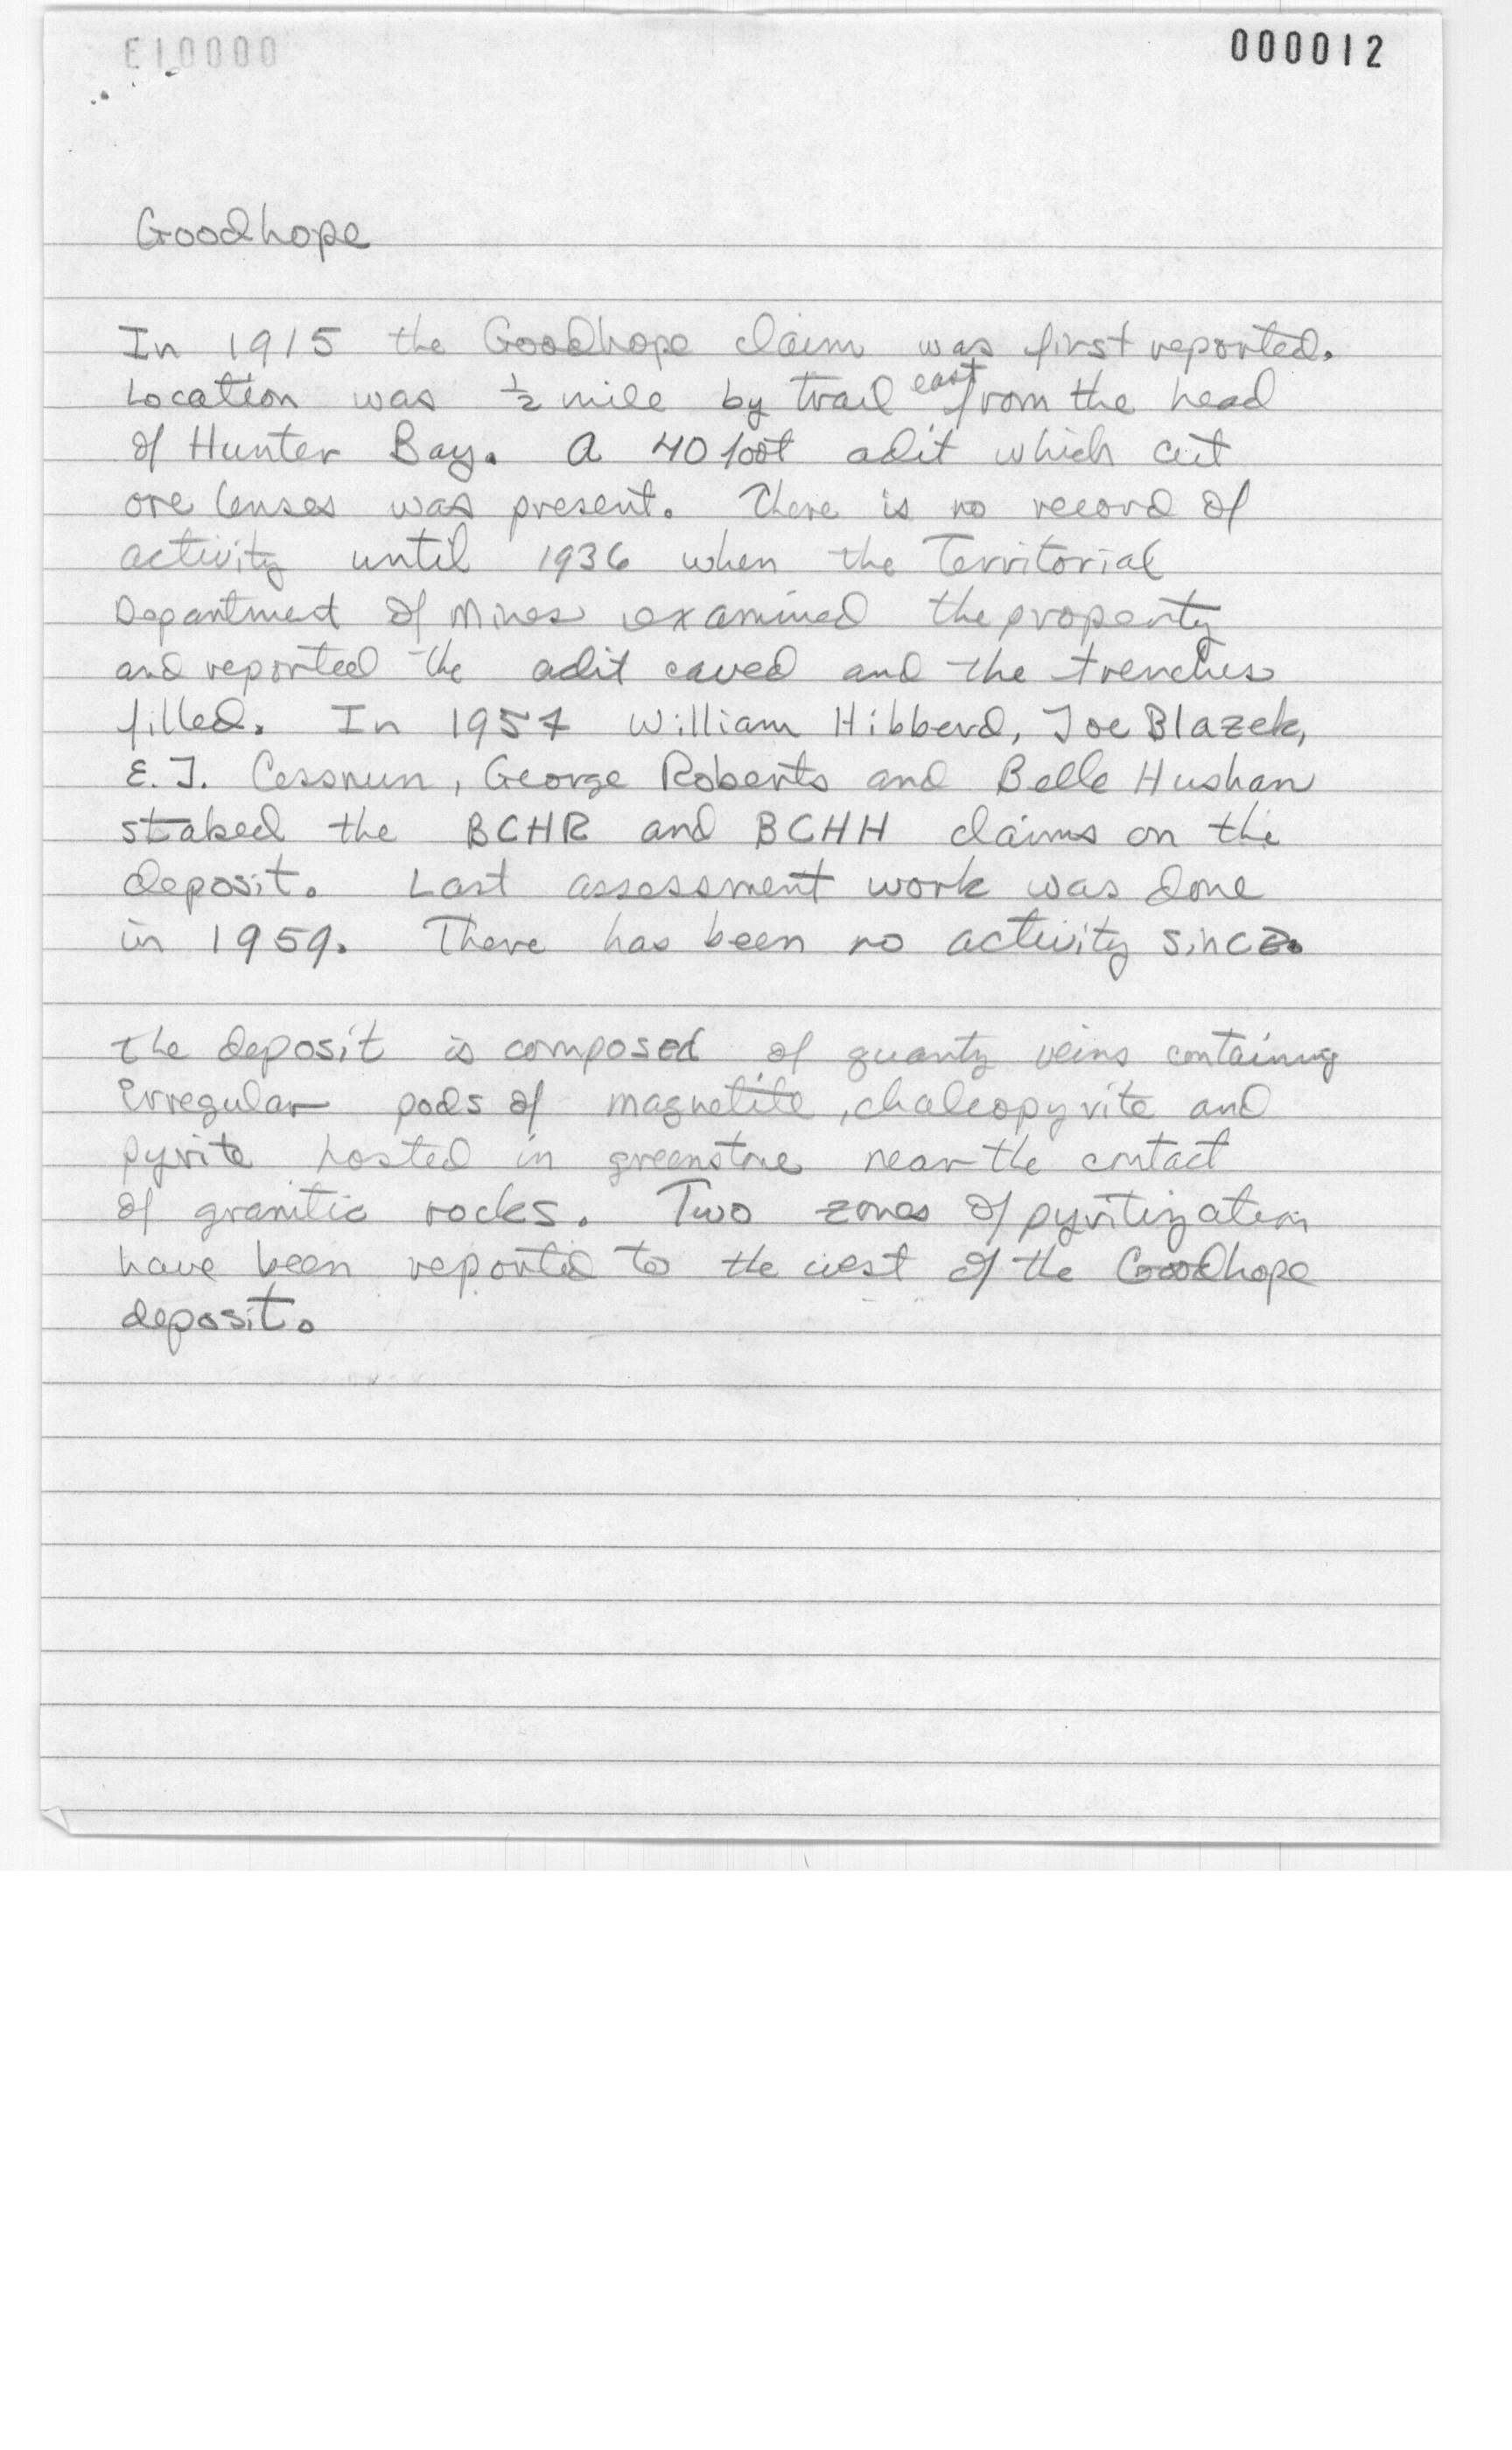 000012
Goodhope
In 1915 the Goodhope claim was first reported.
Location was ½ mile by trail east from the head
of Hunter Bay. A 40 foot adit which cut
ore lenses was present. There is no record of
activity until 1936 when the Territorial
Department of Mines examined the property
and reported the adit caved and the trenches
filled. In 1957 William Hibberd, Joe Blazek,
E. J. Cessnun, George Roberts and Belle Hushan
staked the BCHR and BCHH claims on the
deposit. Last assessment work was done
in 1959. There has been no activity since.
The deposit is composed of quartz veins containing
irregular pods of magnetite, chalcopyrite and
pyrite hosted in greenstone near the contact
of granitic rocks. Two zones of pyritization
have been reported to the west of the Goodhope
deposit.